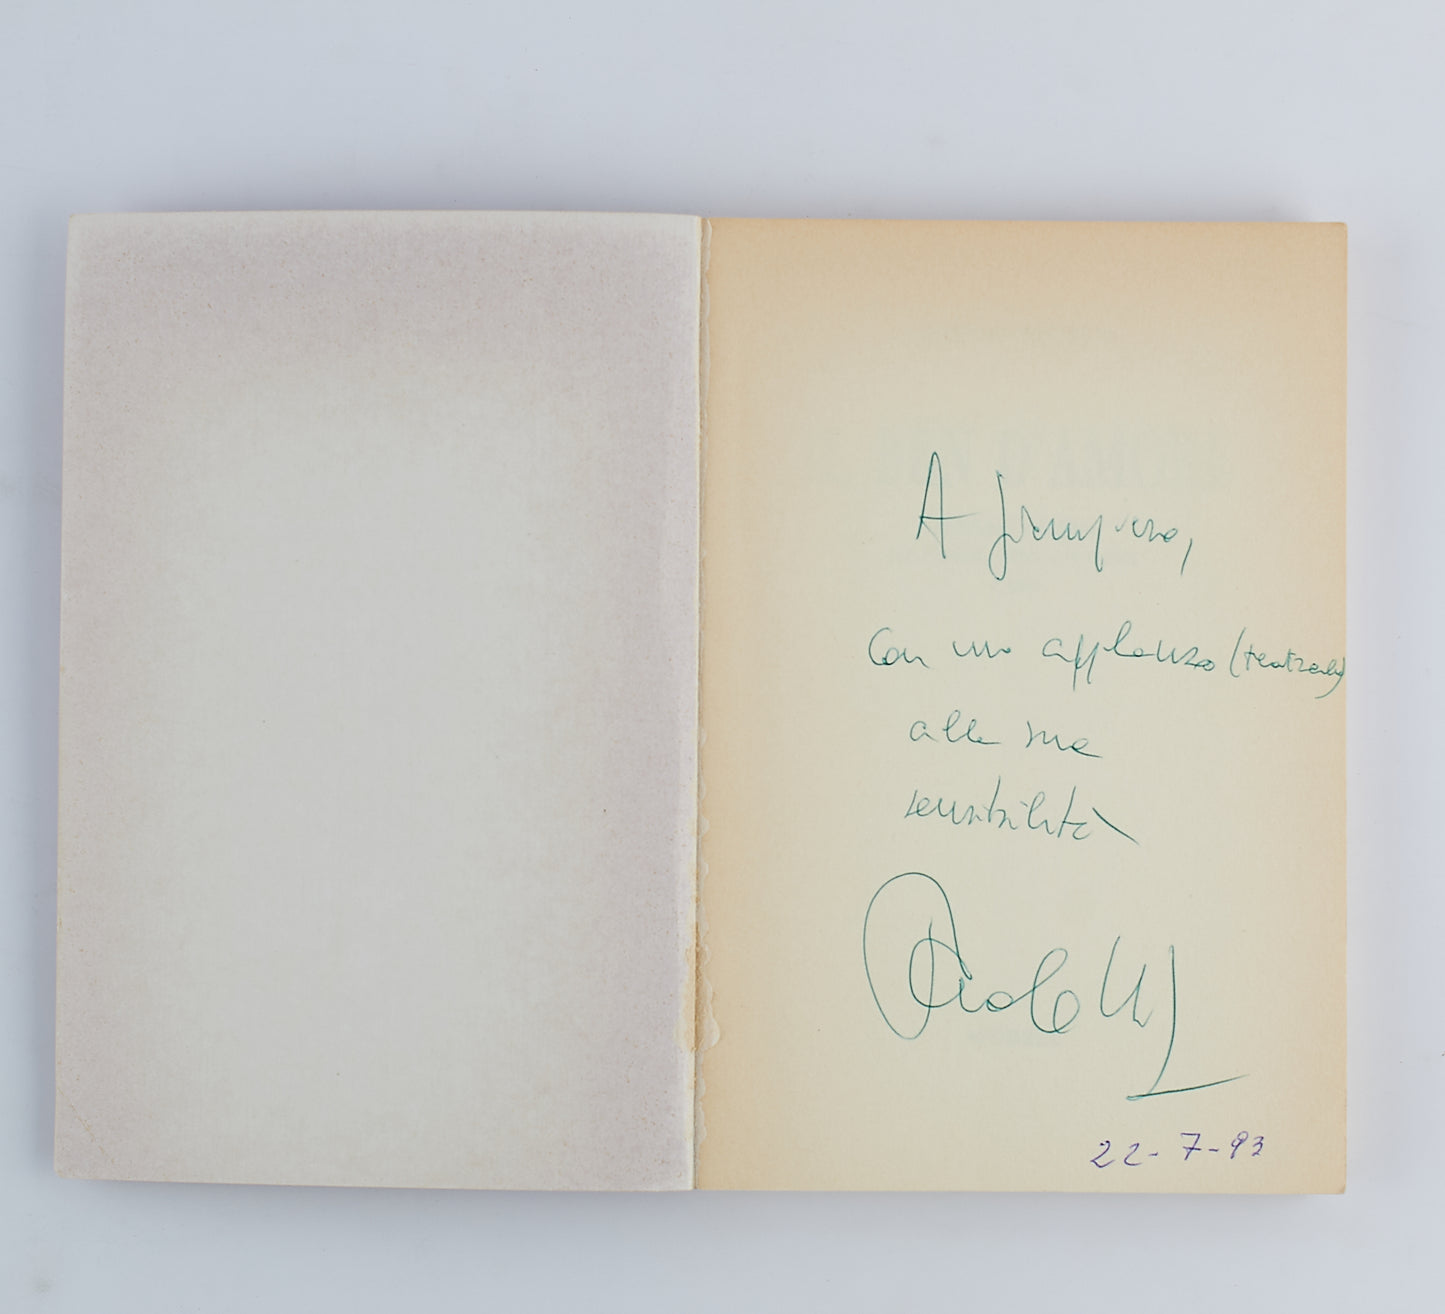 A Giampiero,
Con un applauso (teatrale)
alla sua
sensibilità
22-7-93